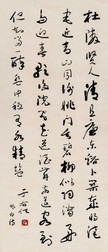 杜陵賢人清且廉東谿卜築歲將淹
宅近青山同謝朓門垂碧柳似陶潛好
鳥迎春歌後院飛花送酒舞前簷客到
但知留一醉盤中祇有水精鹽
于右任